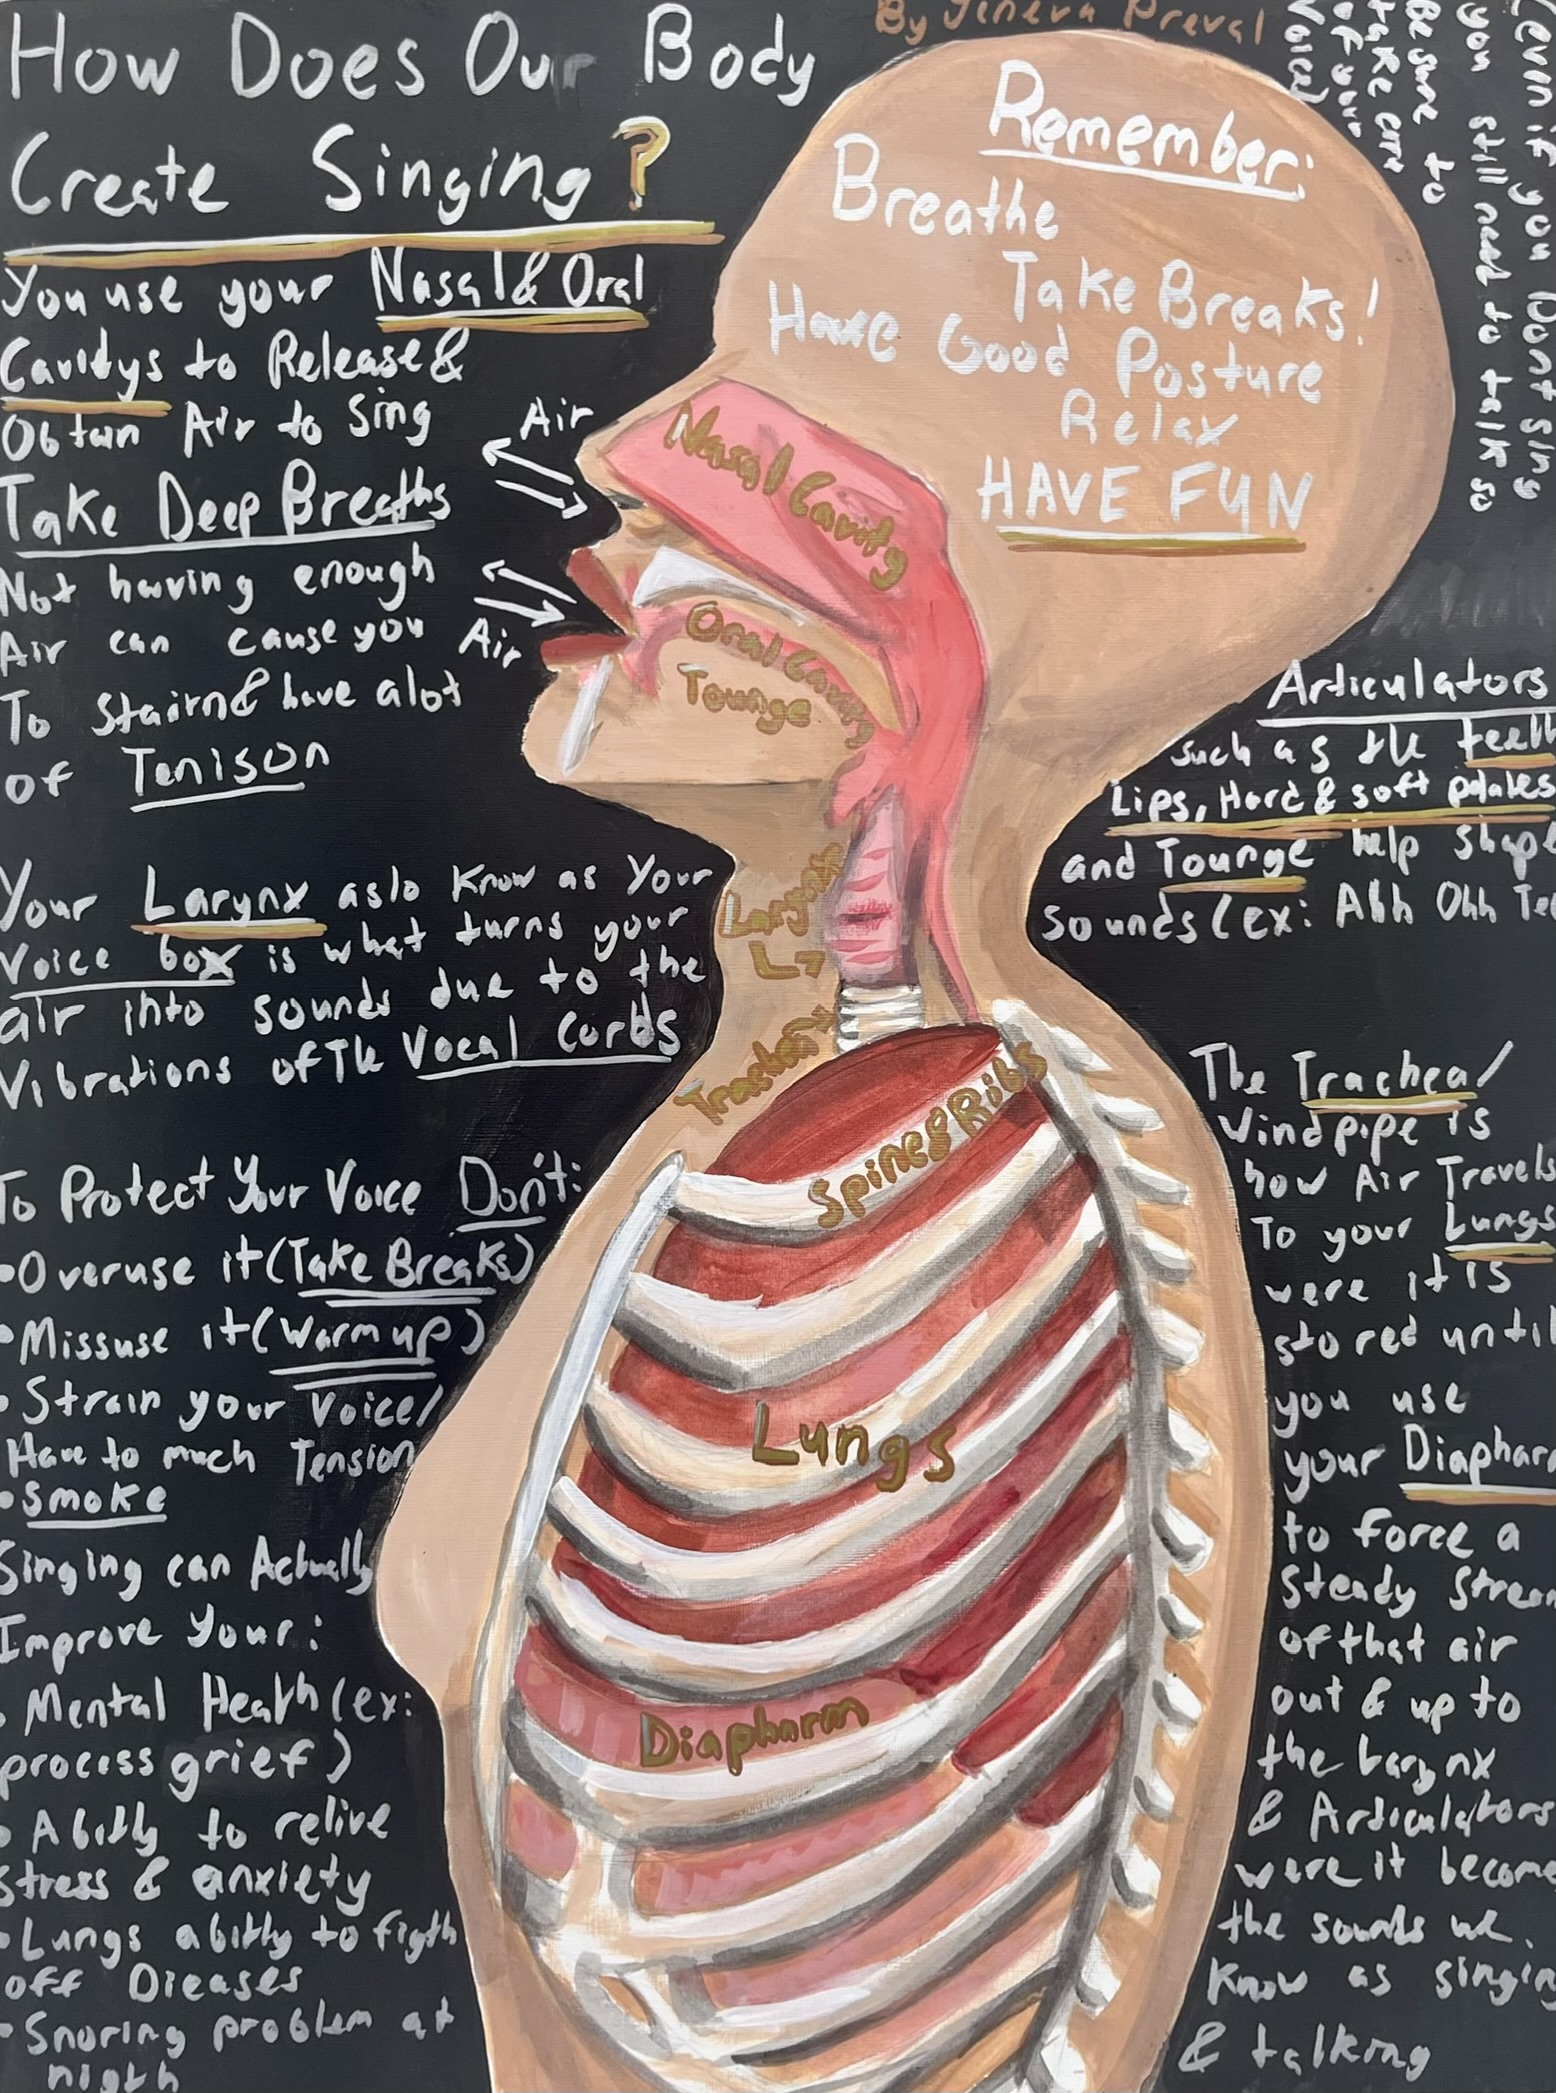 How Does Our Body
Create Singing?
By Jeneva Preval
You use your Nasal & Oral
Cavidys to Release &
Obtain Air to Sing
Take Deep Breaths
Not having enough
Air can cause you
To stairn & have alot
of Tenison
Your Larynx aslo Know as Your
Voice box is what turns your
air into sounds due to the
Vibrations of The Vocal Cords
To Protect Your Voice Don't:
•Overuse it (Take Breaks)
•Missuse it (Warm up)
•Strain your Voice/
Have to much Tension
•Smoke
Singing can Actually
Improve Your:
•Mental Health (ex:
process grief)
•Abitly to relive
stress & anxiety
•Lungs abitly to figth
off Dieases
•Snoring problem at
nigth
Remember:
Breathe
Take Breaks!
Have Good Posture
Relax
HAVE FUN
Air
Air
Nasal Cavity
Oral Cavity
Tounge
Larynx
Spine & Ribs
Lungs
Diapharm
Evin if you Dont Sing
you still need to talk so
Be sure to
take care
of your
Voice!
Articulators
such as the teeth
Lips, Hard & soft
and Tounge help shape
sounds (ex: Ahh Ohh
The Trachea/
Windpipe is
how Air Travels
To your Lungs
were it is
stored until
you use
your Diapharm
to force a
steady stream
of that air
out & up to
the Larynx
& Articulators
were it become
the sounds we
Know as singing
& talking